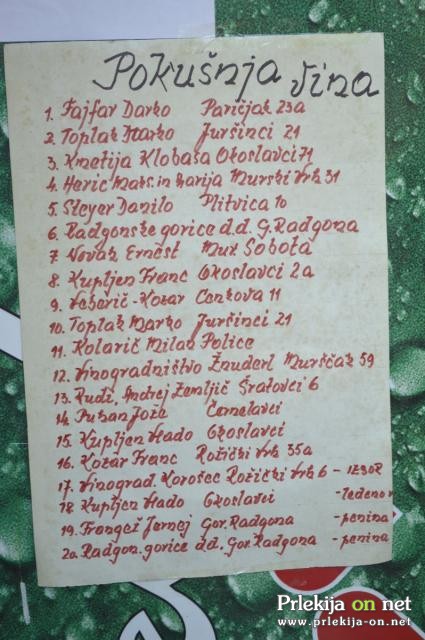 Pokušnja vina
1. Fajfar Darko Paričjak 23a
2. Toplak Marko Juršinci 21
3. Kmetija Klobasa Okoslavci 71
4. Heric Maks. in Marija Murski Vrh 31
5. Steyer Danilo Plitvica 10
6. Radgonske gorice d.d. G. Radgona
7 Novak Ernest Mur. Sobota
8 Kupljen Franc Okoslavci 2a
9. Veberič-Kozar Cankova 11
10. Toplak Marko Juršinci 21
11. Kolarič Milan Police
12. Vinogradništvo Žnuderl Murščak 59
13. Rudi, Andrej Žemljič Šratovci 6
14. Puhan Jože Cernelavci
15. Kupljen Vlado Okoslavci
16. Kozar Franc Rožički Vrh 35a
17. Vinograd. Korošec Rožički Vrh 6 - IZBOR
18 Kupljen Vlado Okoslavci - ledeno v
19. Frangež Jernej Gor. Radgona - penina
20. Radgon. gorice d.d. Gor. Radgona - penina
Prlekija on net
www.prlekija-on.net